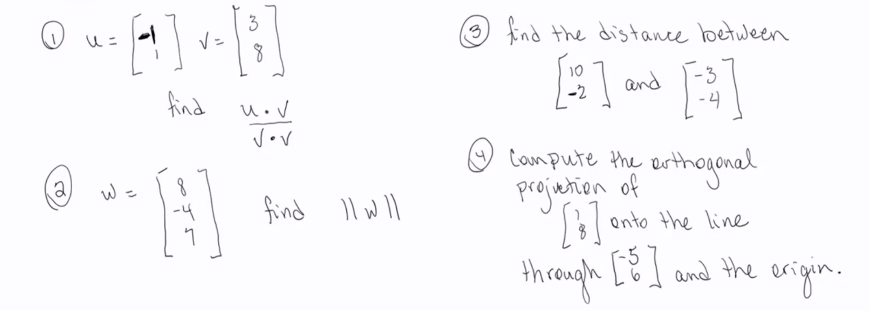 ① u = [-1
1] v = [3
8]
find u · v
v · v
② w = [8
-4
7] find ||w||
③ find the distance between
[10
-2] and [-3
-4]
④ Compute the orthogonal
projection of
[1
8] onto the line
through [-5
6] and the origin.